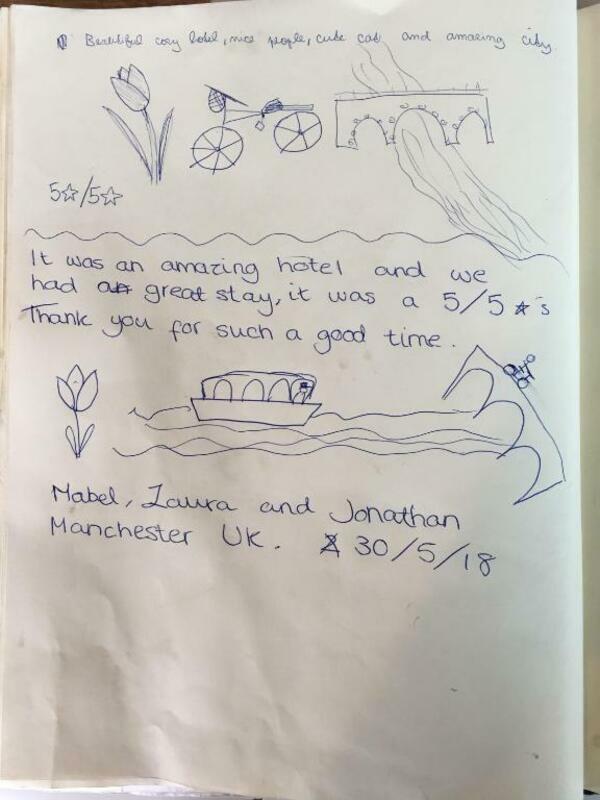 Beautiful cosy hotel, nice people, cute cat and amazing city.
5☆/5☆
It was an amazing hotel and we
had a great stay, it was a 5/5 ★'s
Thank you for such a good time.
Mabel, Laura and Jonathan
Manchester UK. 30/5/18